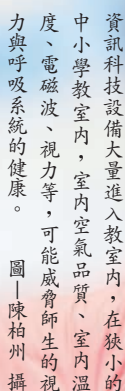 資訊科技設備大量進入教室內，在狹小的
中小學教室內，室內空氣品質、室內溫
度、電磁波、視力等，可能威脅師生的視
力與呼吸系統的健康。　圖—陳柏州　攝